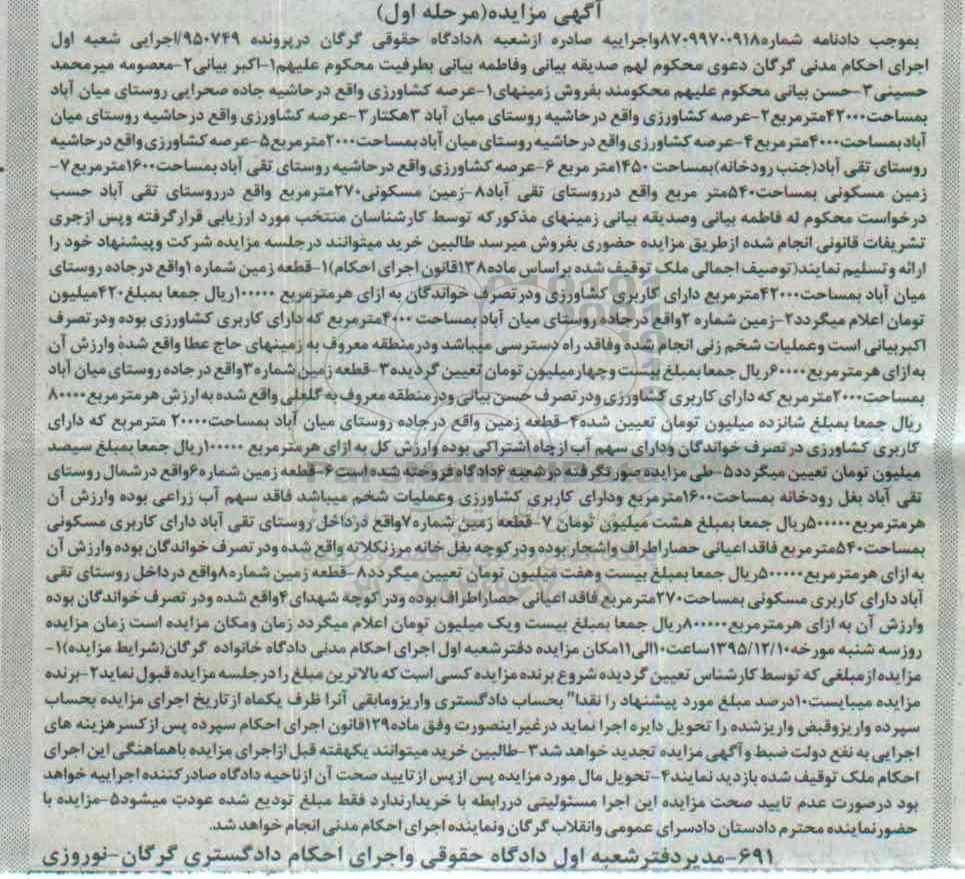 آگهی مزایده(مرحله اول)
بموجب دادنامه شماره۸۷۰۹۹۷۰۰۹۱۸واجراییه صادره ازشعبه ۸دادگاه حقوقی گرگان درپرونده ۹۵۰۷۴۹/اجرایی شعبه اول
اجرای احکام مدنی گرگان دعوی محکوم لهم صدیقه بیانی وفاطمه بیانی بطرفیت محکوم علیهم۱-اکبر بیانی۲-معصومه میرمحمد
حسینی۳-حسن بیانی محکوم علیهم محکومند بفروش زمینهای۱-عرصه کشاورزی واقع درحاشیه جاده صحرایی روستای میان آباد
بمساحت۴۲۰۰۰مترمربع۲-عرصه کشاورزی واقع درحاشیه روستای میان آباد ۳هکتار۳-عرصه کشاورزی واقع درحاشیه روستای میان
آبادبمساحت۴۰۰۰مترمربع۴-عرصه کشاورزی واقع درحاشیه روستای میان آبادبمساحت۲۰۰۰مترمربع۵-عرصه کشاورزی واقع درحاشیه
روستای تقی آباد(جنب رودخانه)بمساحت۱۴۵۰متر مربع ۶-عرصه کشاورزی واقع درحاشیه روستای تقی آبادبمساحت۱۶۰۰مترمربع۷-
زمین مسکونی بمساحت۵۴۰متر مربع واقع درروستای تقی آباد۸-زمین مسکونی۲۷۰مترمربع واقع درروستای تقی آباد حسب
درخواست محکوم له فاطمه بیانی وصدیقه بیانی زمینهای مذکورکه توسط کارشناسان منتخب مورد ارزیابی قرارگرفته وپس ازجری
تشریفات قانونی انجام شده ازطریق مزایده حضوری بفروش میرسد طالبین خرید میتوانند درجلسه مزایده شرکت وپیشنهاد خود را
ارائه وتسلیم نمایند(توصیف اجمالی ملک توقیف شده براساس ماده۱۳۸قانون اجرای احکام)۱-قطعه زمین شماره ۱واقع درجاده روستای
میان آباد بمساحت۴۲۰۰۰مترمربع دارای کاربری کشاورزی ودرتصرف خواندگان به ازای هرمترمربع ۱۰۰۰۰۰ریال جمعا بمبلغ۴۲۰میلیون
تومان اعلام میگردد۲-زمین شماره ۲واقع درجاده روستای میان آباد بمساحت ۴۰۰۰مترمربع که دارای کاربری کشاورزی بوده ودرتصرف
اکبربیانی است وعملیات شخم زنی انجام شده وفاقد راه دسترسی میباشد ودرمنطقه معروف به زمینهای حاج عطا واقع شده وارزش آن
به ازای هرمترمربع۶۰۰۰۰ریال جمعا بمبلغ بیست وچهارمیلیون تومان تعیین گردیده۳-قطعه زمین شماره۳واقع درجاده روستای میان آباد
بمساحت۲۰۰۰مترمربع که دارای کاربری کشاورزی ودرتصرف حسن بیانی ودرمنطقه معروف به گلعلی واقع شده به ارزش هرمترمربع۸۰۰۰۰
ریال جمعا بمبلغ شانزده میلیون تومان تعیین شده۴-قطعه زمین واقع درجاده روستای میان آباد بمساحت۲۰۰۰۰ مترمربع که دارای
کاربری کشاورزی درتصرف خواندگان ودارای سهم آب ازچاه اشتراکی بوده وارزش کل به ازای هرمترمربع ۱۰۰۰۰۰ریال جمعا بمبلغ سیصد
میلیون تومان تعیین میگردد۵-طی مزایده صورتگرفته درشعبه ۶دادگاه فروخته شده است۶-قطعه زمین شماره۶واقع درشمال روستای
تقی آباد بغل رودخانه بمساحت۱۶۰۰مترمربع ودارای کاربری کشاورزی وعملیات شخم میباشد فاقد سهم آب زراعی بوده وارزش آن
هرمترمربع۵۰۰۰۰۰ریال جمعا بمبلغ هشت میلیون تومان ۷-قطعه زمین شماره۷واقع درداخل روستای تقی آباد دارای کاربری مسکونی
بمساحت۵۴۰مترمربع فاقد اعیانی حصاراطراف واشجاربوده ودرکوچه بغل خانه مرزنکلاته واقع شده ودرتصرف خواندگان بوده وارزش آن
به ازای هرمترمربع۵۰۰۰۰۰ریال جمعا بمبلغ بیست وهفت میلیون تومان تعیین میگردد۸-قطعه زمین شماره۸واقع درداخل روستای تقی
آباد دارای کاربری مسکونی بمساحت۲۷۰مترمربع فاقد اعیانی حصاراطراف بوده ودر کوچه شهدای۴واقع شده ودر تصرف خواندگان بوده
وارزش آن به ازای هرمترمربع۸۰۰۰۰۰ریال جمعا بمبلغ بیست ویک میلیون تومان اعلام میگردد زمان ومکان مزایده است زمان مزایده
روزسه شنبه مورخه۱۳۹۵/۱۲/۱۰ساعت۱۰الی۱۱مکان مزایده دفترشعبه اول اجرای احکام مدنی دادگاه خانواده گرگان(شرایط مزایده)۱-
مزایده ازمبلغی که توسط کارشناس تعیین گردیده شروع برنده مزایده کسی است که بالاترین مبلغ را درجلسه مزایده قبول نماید۲-برنده
مزایده میبایست۱۰درصد مبلغ مورد پیشنهاد را نقدا" بحساب دادگستری واریزومابقی آنرا ظرف یکماه ازتاریخ اجرای مزایده بحساب
سپرده واریزوقبض واریزشده را تحویل دایره اجرا نماید درغیراینصورت وفق ماده۱۲۹قانون اجرای احکام سپرده پس ازکسرهزینه های
اجرایی به نفع دولت ضبط وآگهی مزایده تجدید خواهد شد۳-طالبین خرید میتوانند یکهفته قبل ازاجرای مزایده باهماهنگی این اجرای
احکام ملک توقیف شده بازدید نمایند۴-تحویل مال مورد مزایده پس ازپس ازتایید صحت آن ازناحیه دادگاه صادرکننده اجراییه خواهد
بود درصورت عدم تایید صحت مزایده این اجرا مسئولیتی دررابطه با خریدارندارد فقط مبلغ تودیع شده عودت میشود۵-مزایده با
حضورنماینده محترم دادستان دادسرای عمومی وانقلاب گرگان ونماینده اجرای احکام مدنی انجام خواهد شد.
۶۹۱-مدیردفترشعبه اول دادگاه حقوقی واجرای احکام دادگستری گرگان-نوروزی